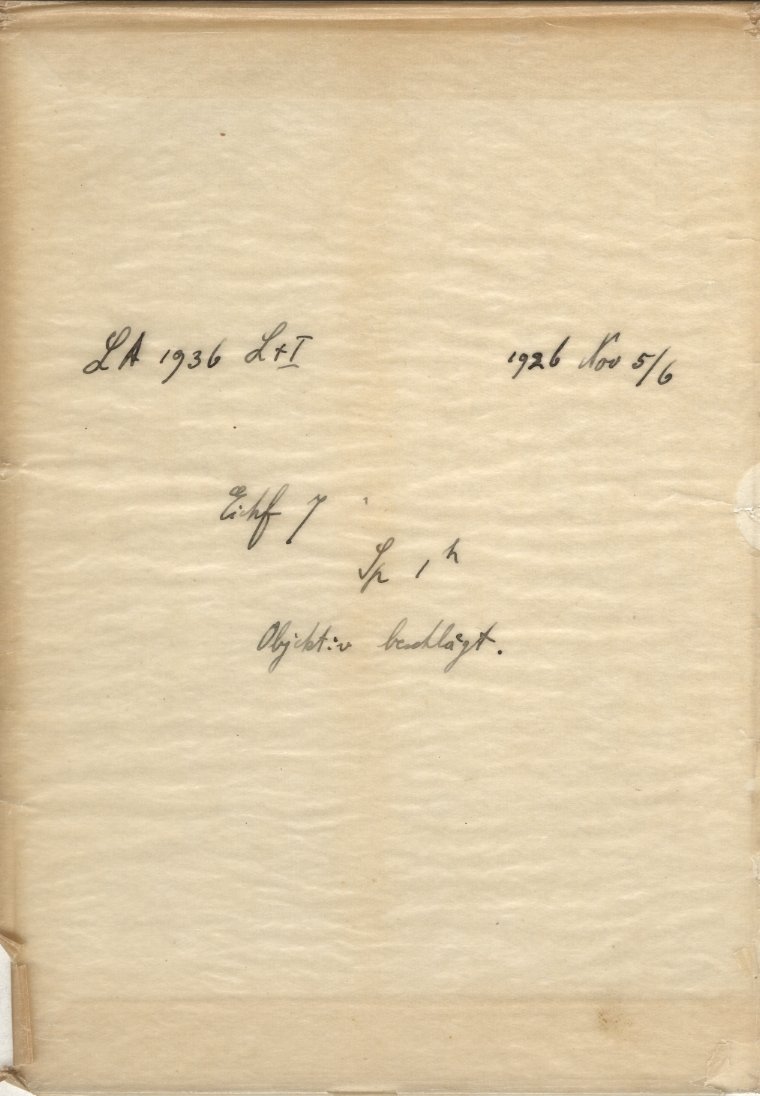 LA 1936 L+I 1926 Nov 5/6
Eichf 7
Sp 1h
Objektiv beschlägt.